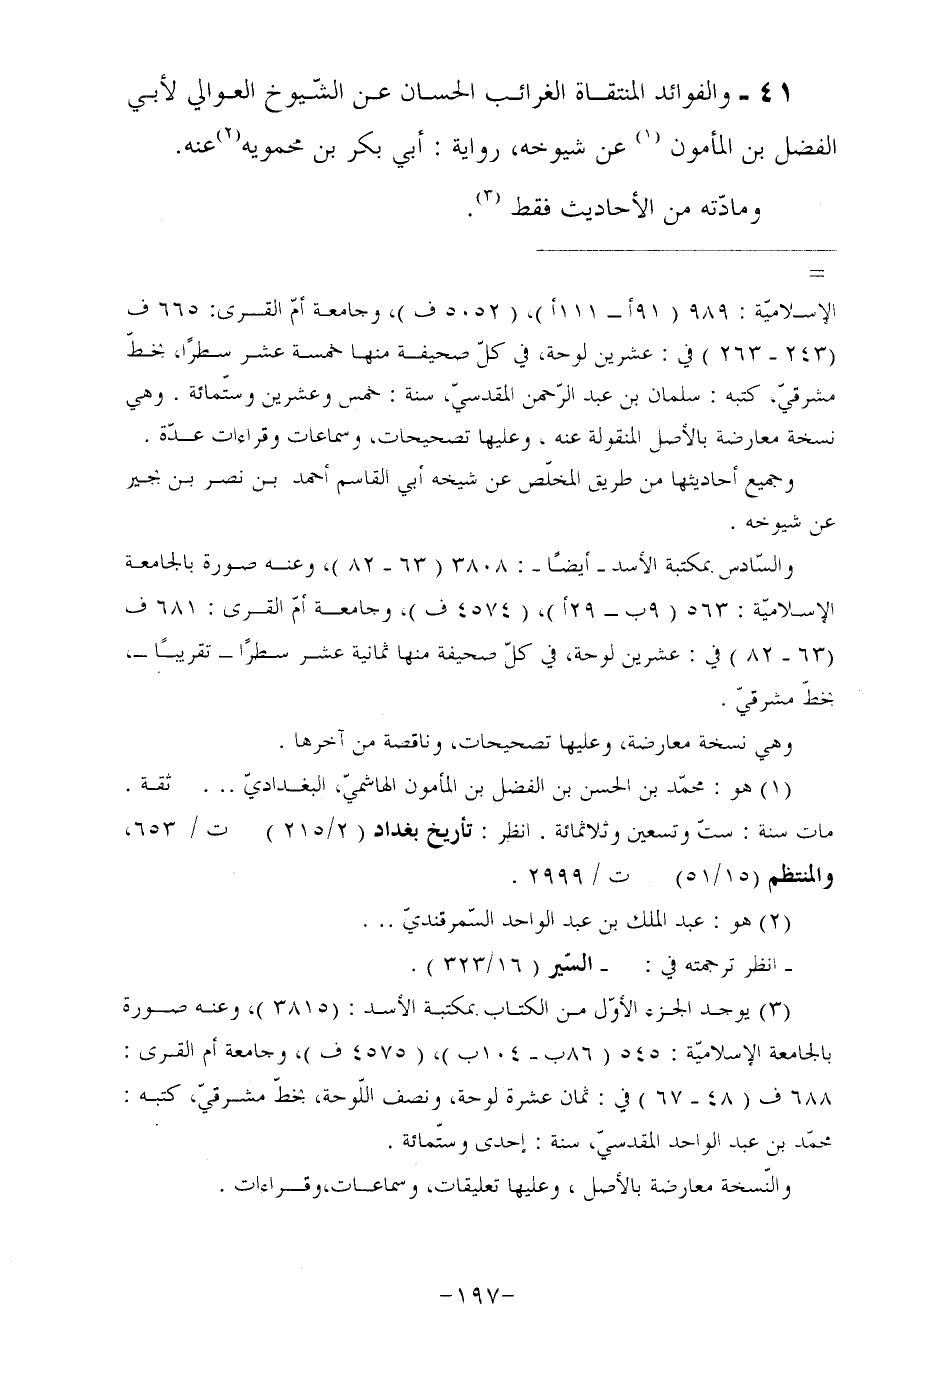 ٤١ - والفوائد المنتقـاة الغرائـب الحسـان عـن الشّيوخ العـوالي لأبـي
الفضل بن المأمون (١) عن شيوخه، رواية : أبي بكر بن محمويه(٢)عنه.
ومادّته من الأحاديث فقط (٣).
=
الإسـلاميّة : ٩٨٩ ( ٩١أ – ١١١أ )، ( ٥٠٥٢ ف )، وجامعـة أمّ القـرى: ٦٦٥ ف
(٢٤٣ - ٢٦٣ ) في : عشرين لوحة، في كلّ صحيفـة منهـا خمسـة عشـر سـطرًا، بخطّ
مشرقيّ، كتبه : سلمان بن عبد الرّحمن المقدسيّ، سنة : خمس وعشرين وستّمائة . وهي
نسخة معارضة بالأصل المنقولة عنه ، وعليها تصحيحات، وسماعات وقراءات عـدّة .
وجميع أحاديثها من طريق المخلّص عن شيخه أبي القاسم أحمد بـن نصـر بـن بجير
عن شيوخه .
والسّادس بمكتبة الأسد - أيضًـا - : ٣٨٠٨ ( ٦٣ - ٨٢ )، وعنـه صـورة بالجامعـة
الإسـلاميّة : ٥٦٣ ( ٩ب – ٢٩أ )، ( ٤٥٧٤ ف )، وجامعـة أمّ القـرى : ٦٨١ ف
(٦٣ - ٨٢ ) في : عشرين لوحة، في كلّ صحيفة منها ثمانية عشـر سـطرًا – تقريبًـا –،
بخطّ مشرقيّ .
وهي نسخة معارضة، وعليها تصحيحات، وناقصة من آخرها .
(١) هو : محمّد بن الحسن بن الفضل بن المأمون الهاشميّ، البغـداديّ ... ثقـة .
مات سنة : ستّ وتسعين وثلاثمائة . انظر : تأريخ بغداد ( ٢١٥/٢ ) ت / ٦٥٣،
والمنتظم (٥١/١٥) ت / ٢٩٩٩ .
(٢) هو : عبد الملك بن عبد الواحد السّمرقنديّ ... .
- انظر ترجمته في : - السّير ( ٣٢٣/١٦ ) .
(٣) يوجـد الجزء الأوّل مـن الكتـاب بمكتبـة الأسـد : (٣٨١٥ )، وعنـه صـورة
بالجامعة الإسلاميّة : ٥٤٥ ( ٨٦ب – ١٠٤ب )، ( ٤٥٧٥ ف )، وجامعة أم القرى :
٦٨٨ ف ( ٤٨ - ٦٧ ) في : ثمان عشرة لوحة، ونصف اللّوحة، بخطّ مشـرقيّ، كتبـه :
محمّد بن عبد الواحد المقدسيّ، سنة : إحدى وستّمائة .
والنّسخة معارضة بالأصل ، وعليها تعليقات، وسماعـات،وقـراءات .
-١٩٧-